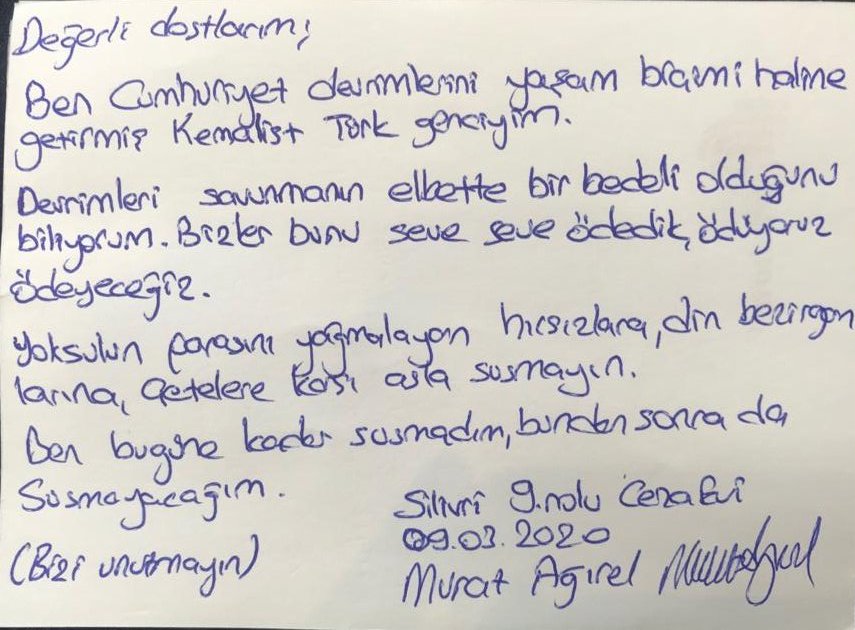 Değerli dostlarım;
Ben Cumhuriyet devrimlerini yaşam biçimi haline
getirmiş Kemalist Türk genciyim.
Devrimleri savunmanın elbette bir bedeli olduğunu
biliyorum. Bizler bunu seve seve ödedik, ödüyoruz
ödeyeceğiz.
Yoksulun parasını yağmalayan hırsızlara, din bezirgan
larına, çetelere karşı asla susmayın.
Ben bugüne kadar susmadım, bundan sonra da
Susmayacağım.
Silivri 9.nolu Cezaevi
09.03.2020
(Bizi unutmayın)
Murat Ağırel